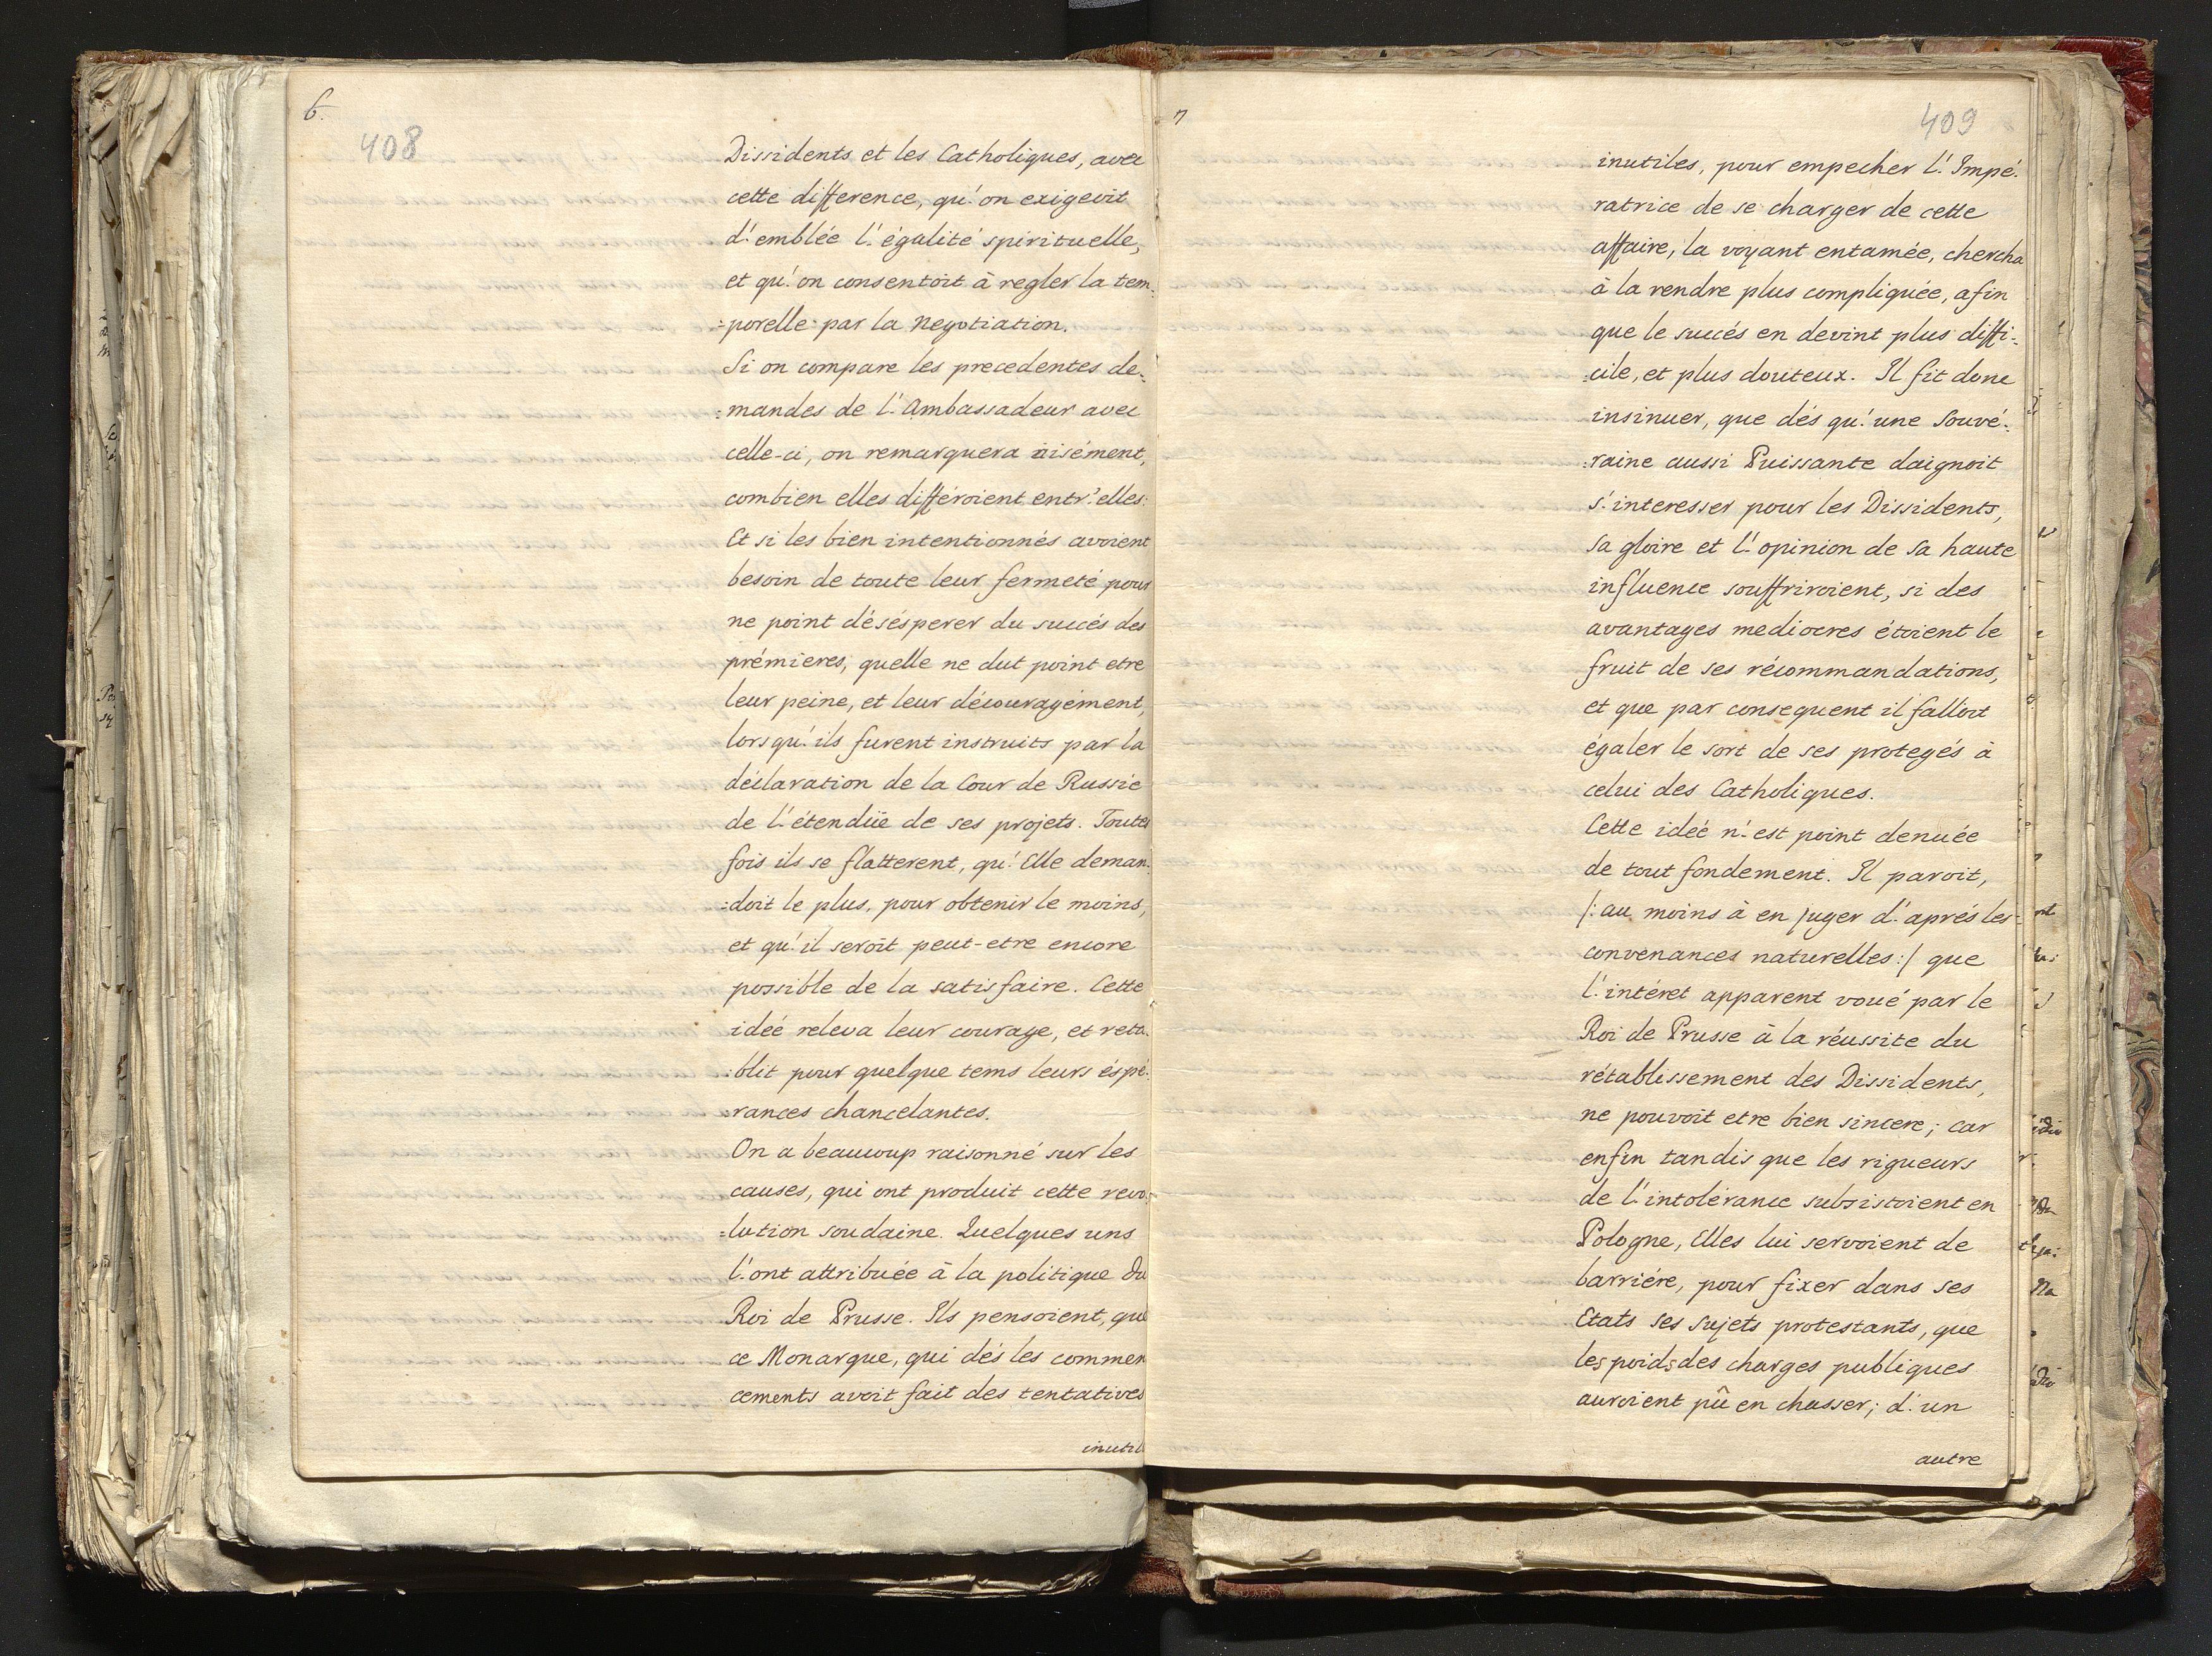 6.
408
Dissidents et les Catholiques, avec
cette difference, qu'on exigeoit
d'emblée l'égalité spirituelle,
et qu'on consentoit à regler la tem=
=porelle par la Negotiation.
Si on compare les precedentes de=
=mandes de l'Ambassadeur avec
celle-ci, on remarquera aisément,
combien elles différoient entr'elles:
Et si les bien intentionnés avoient
besoin de toute leur fermeté pour
ne point désésperer du succés des
prémieres, quelle ne dut point etre
leur peine, et leur découragement,
lorsqu'ils furent instruits par la
déclaration de la Cour de Russie
de l'étendüe de ses projets. Toutes
fois ils se flatterent, qu'Elle deman=
=doit le plus, pour obtenir le moins,
et qu'il seroit peut-etre encore
possible de la satisfaire. Cette
idée releva leur courage, et reta=
=blit pour quelque tems leurs éspé=
=rances chancelantes.
On a beaucoup raisonné sur les
causes, qui ont produit cette revo=
=lution soudaine. Quelques uns
l'ont attribuée à la politique du
Roi de Prusse. Ils pensoient, que
ce Monarque, qui dés les commen
cements avoit fait des tentatives
inutil
7
409
inutiles, pour empecher l'Impé=
ratrice de se charger de cette
affaire, la voyant entamée, chercha
à la rendre plus compliquée, afin
que le succés en devint plus diffi=
=cile, et plus douteux. Il fit donc
insinuer, que dés qu'une Souvé=
=raine aussi Puissante daignoit
s'interesser pour les Dissidents,
sa gloire et l'opinion de sa haute
influence souffriroient, si des
avantages mediocres étoient le
fruit de ses récommandations,
et que par consequent il falloit
égaler le sort de ses protegés à
celui des Catholiques.
Cette idée n'est point denuée
de tout fondement. Il paroit,
/: au moins à en juger d'aprés les
convenances naturelles :/ que
l'intéret apparent voué par le
Roi de Prusse à la réussite du
rétablissement des Dissidents,
ne pouvoit etre bien sincere; car
enfin tandis que les rigueurs
de l'intolérance subsistoient en
Pologne, Elles lui servoient de
barriére, pour fixer dans ses
Etats ses sujets protestants, que
les poids des charges publiques
auroient pû en chasser; d'un
autre